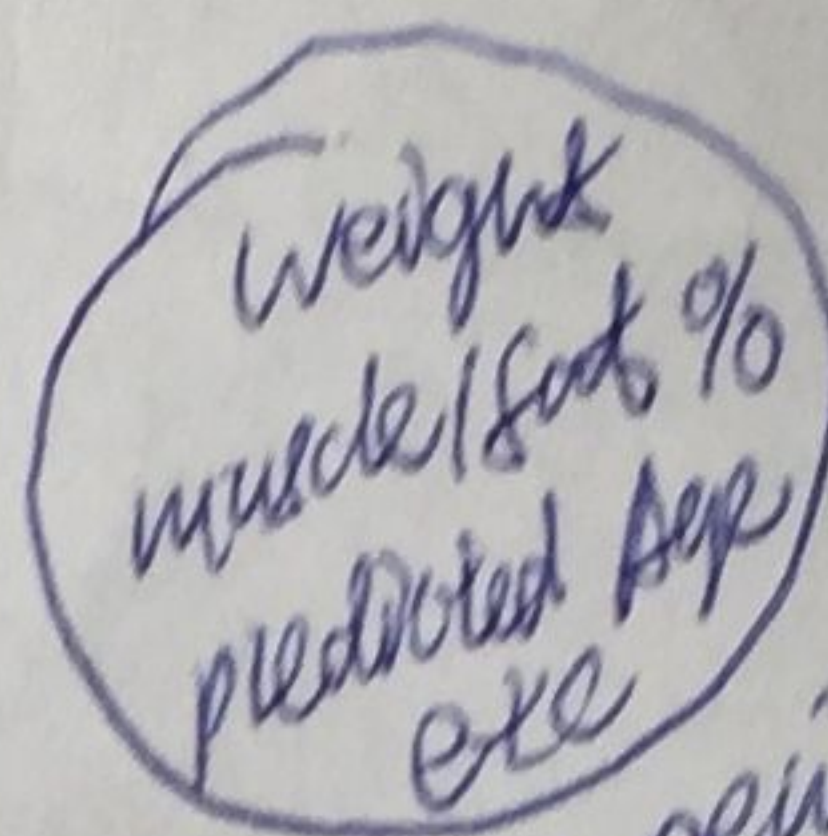 weight
muscle/fat %
predicted Age
etc